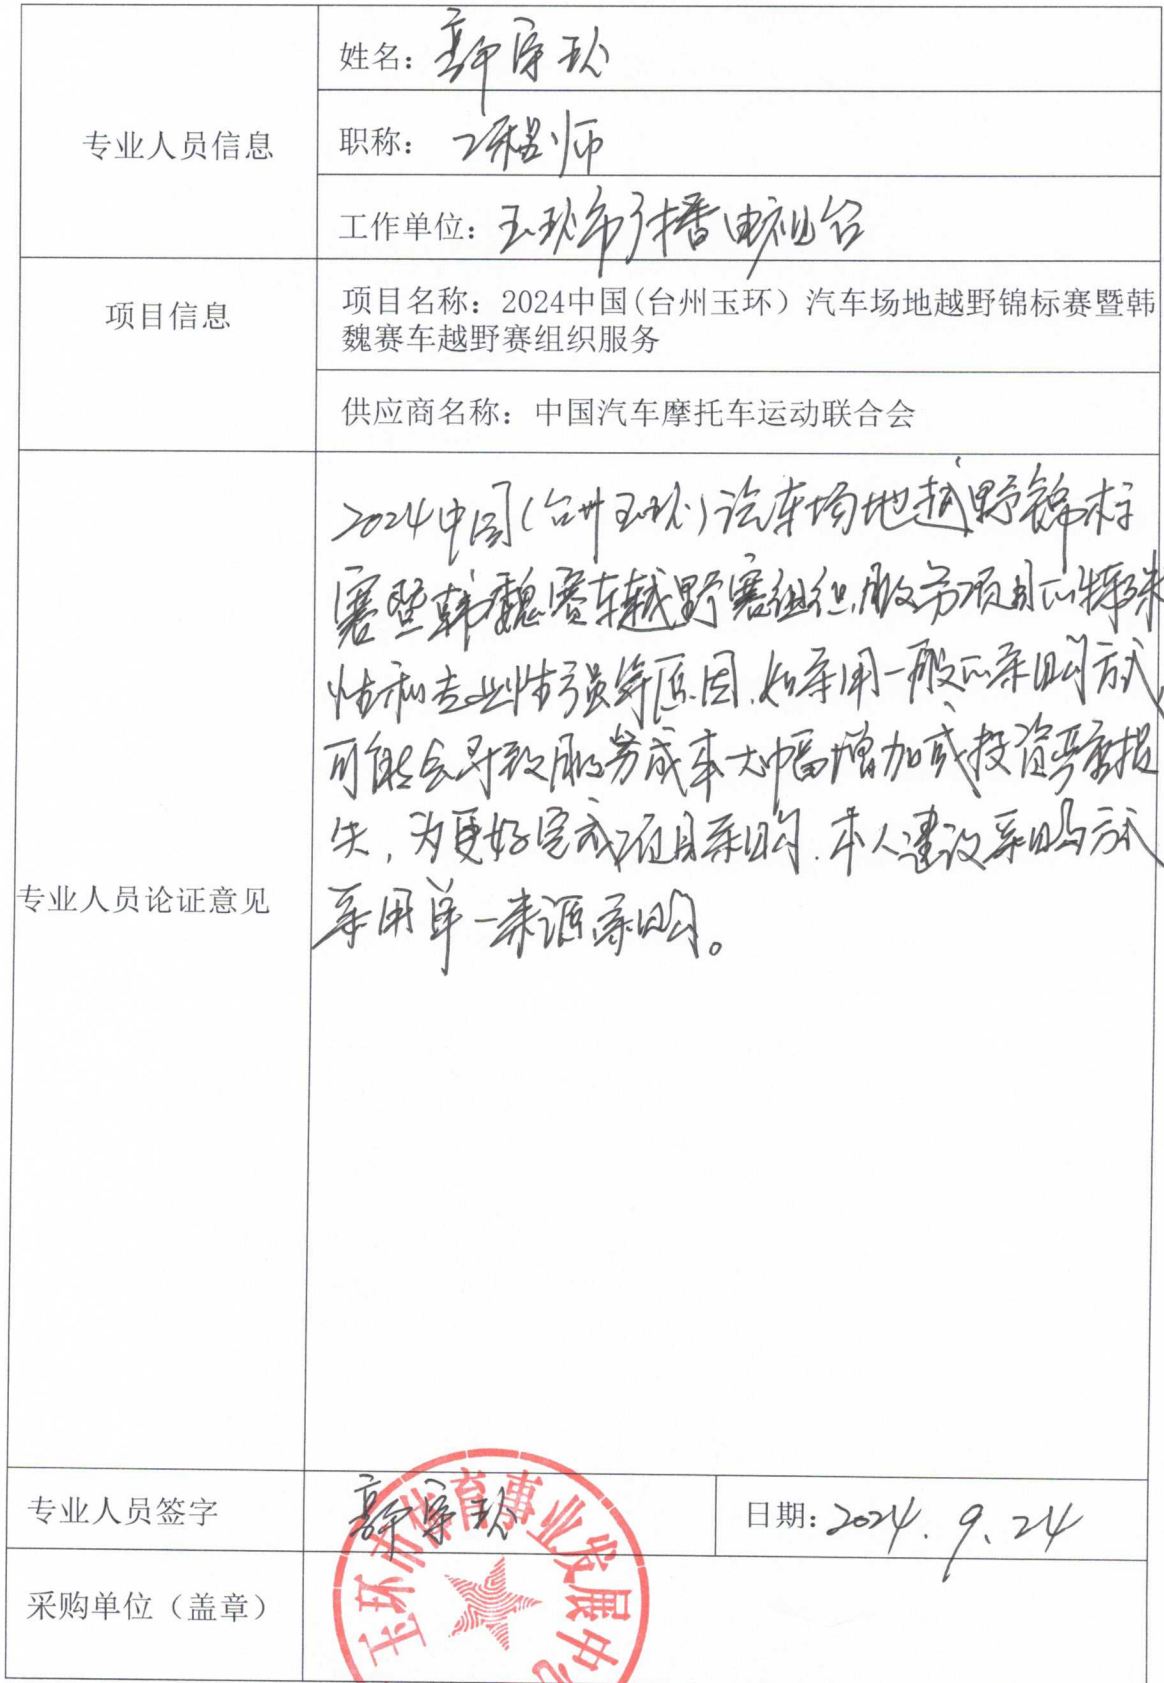 姓名：
职称：工程师
专业人员信息
工作单位：玉环市广播电视台
项目信息
项目名称：2024中国(台州玉环）汽车场地越野锦标赛暨韩
魏赛车越野赛组织服务
供应商名称：中国汽车摩托车运动联合会
2024中国(台州玉环)汽车场地越野锦标
赛暨韩魏赛车越野赛组织服务项目的特殊
性和专业性强等原因,如采用一般的采购方式
可能会导致服务成本大幅增加或投资严重损
失,为更好完成项目采购.本人建议采购方式
采用单一来源采购。
专业人员论证意见
专业人员签字
日期:2024.9.24
采购单位（盖章）
玉环市体育事业发展中心